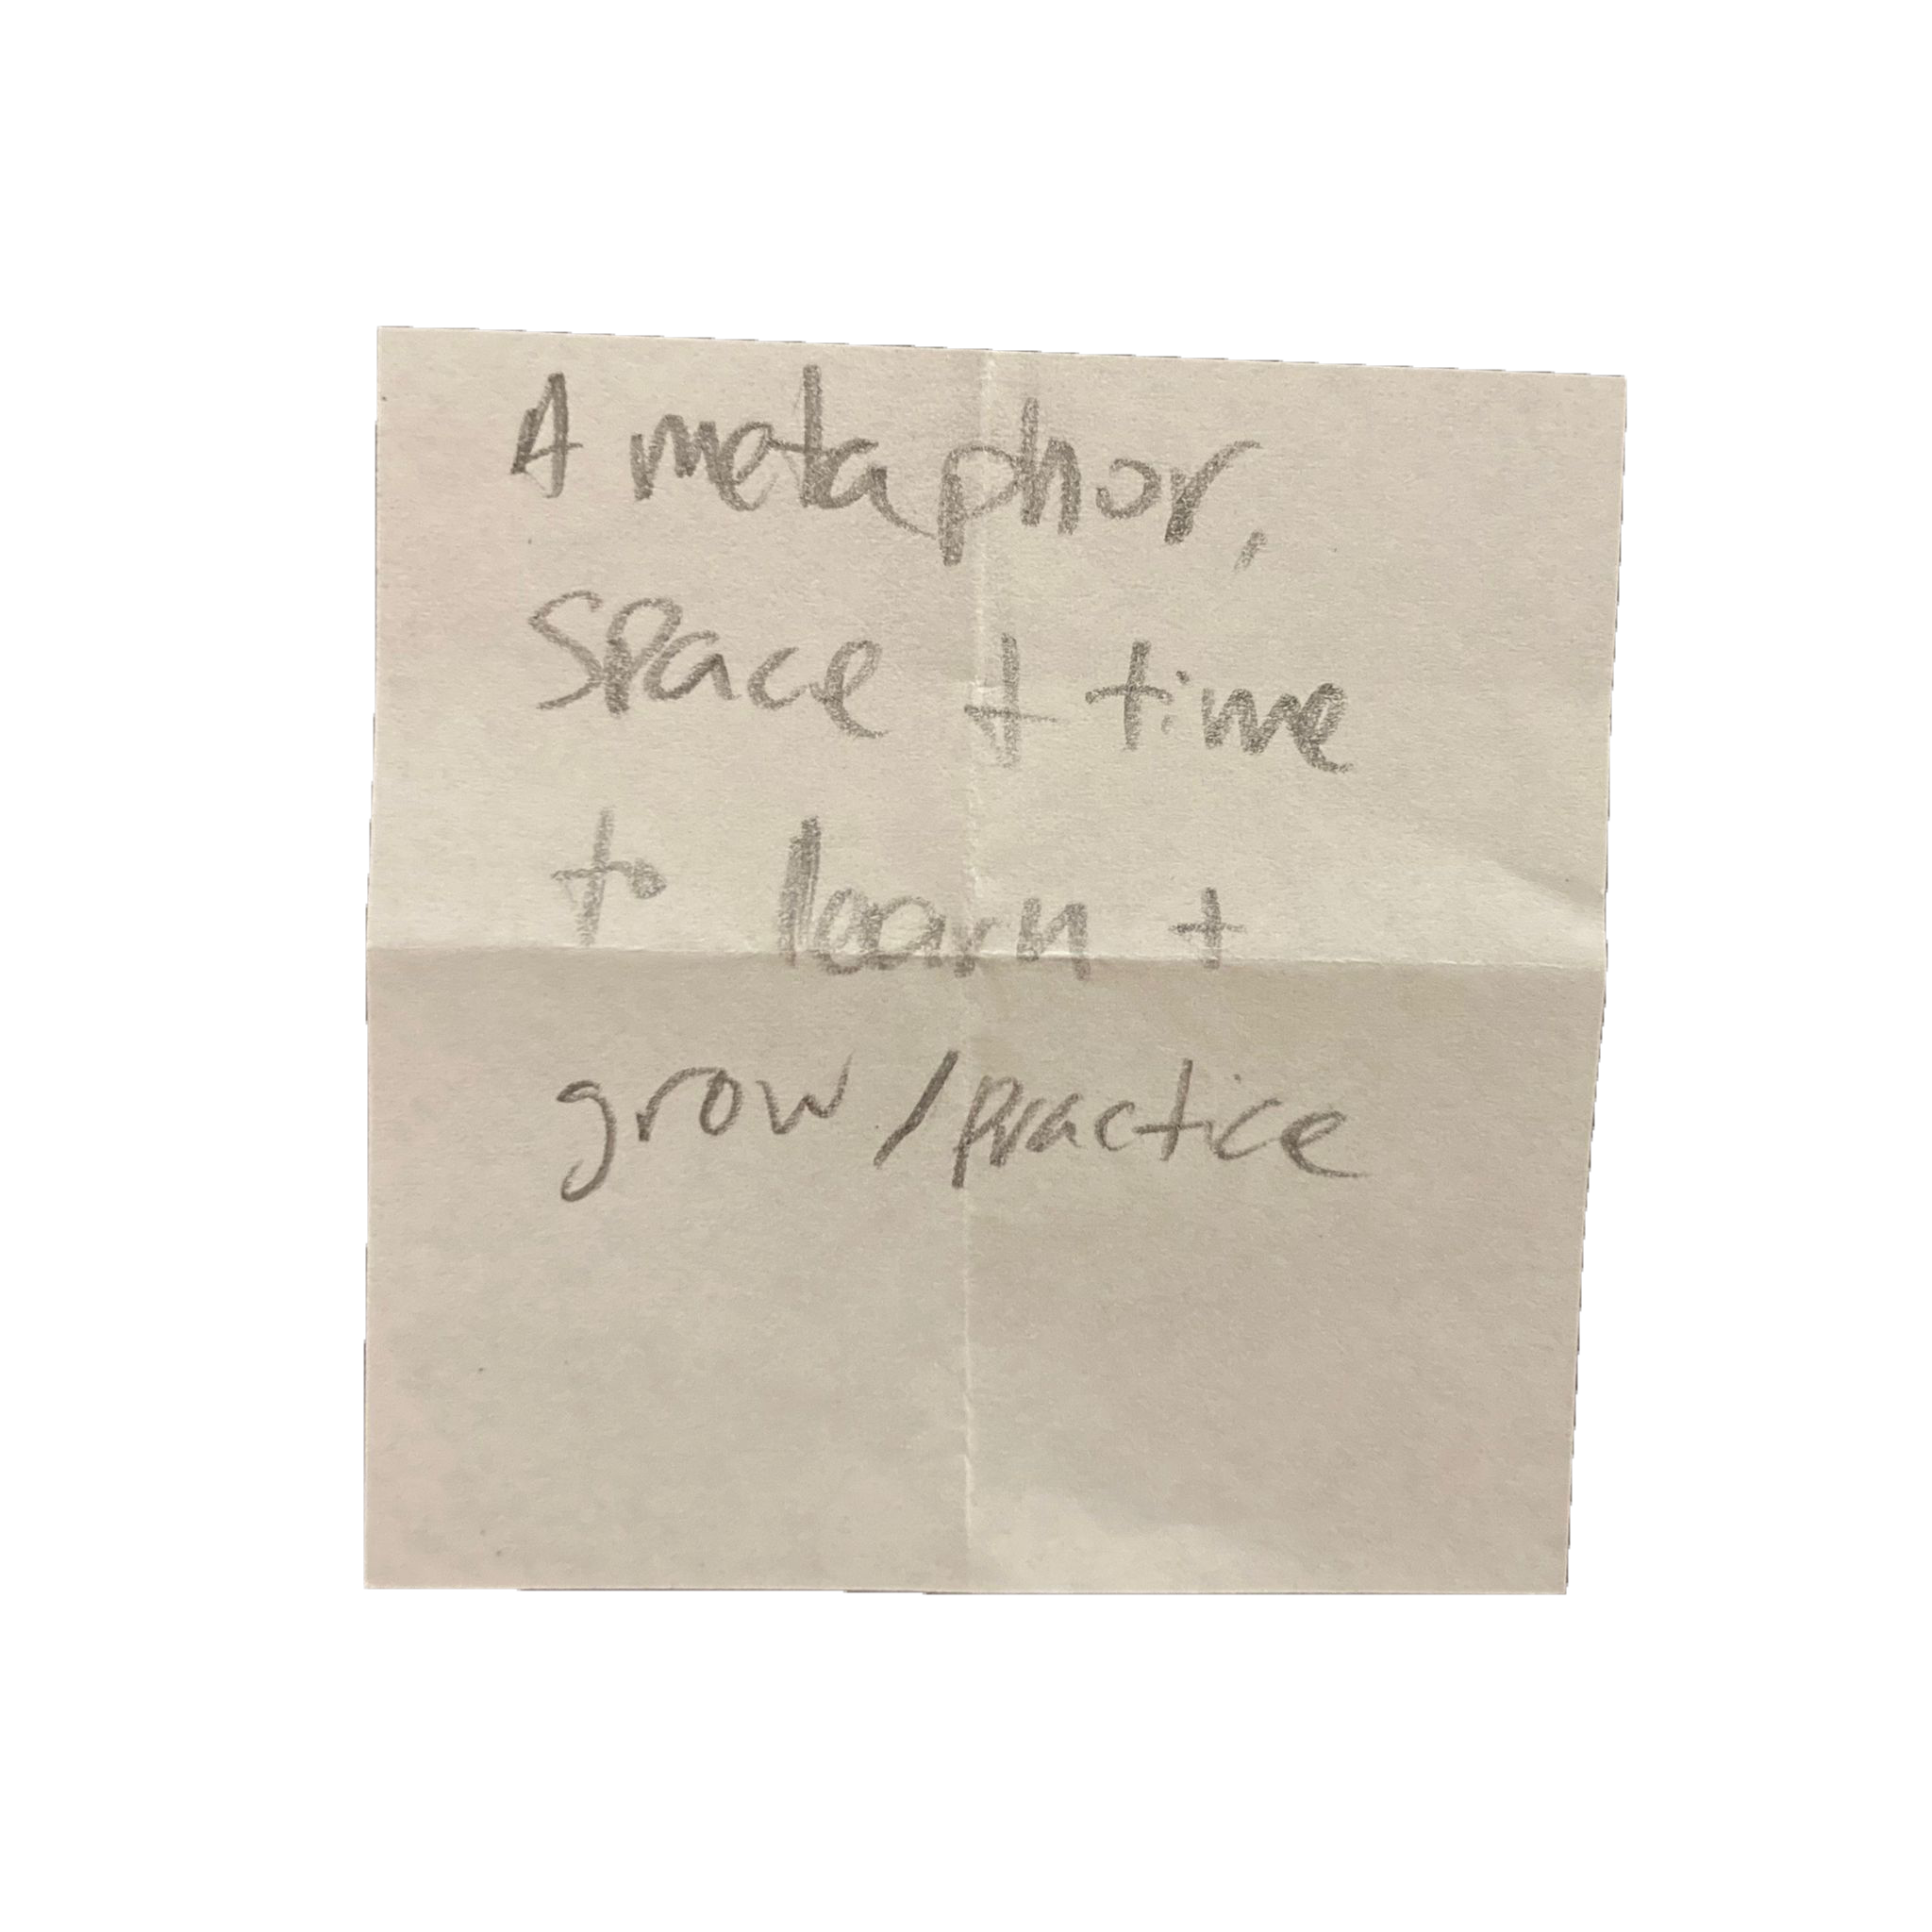 A metaphor,
space + time
to learn +
grow / practice